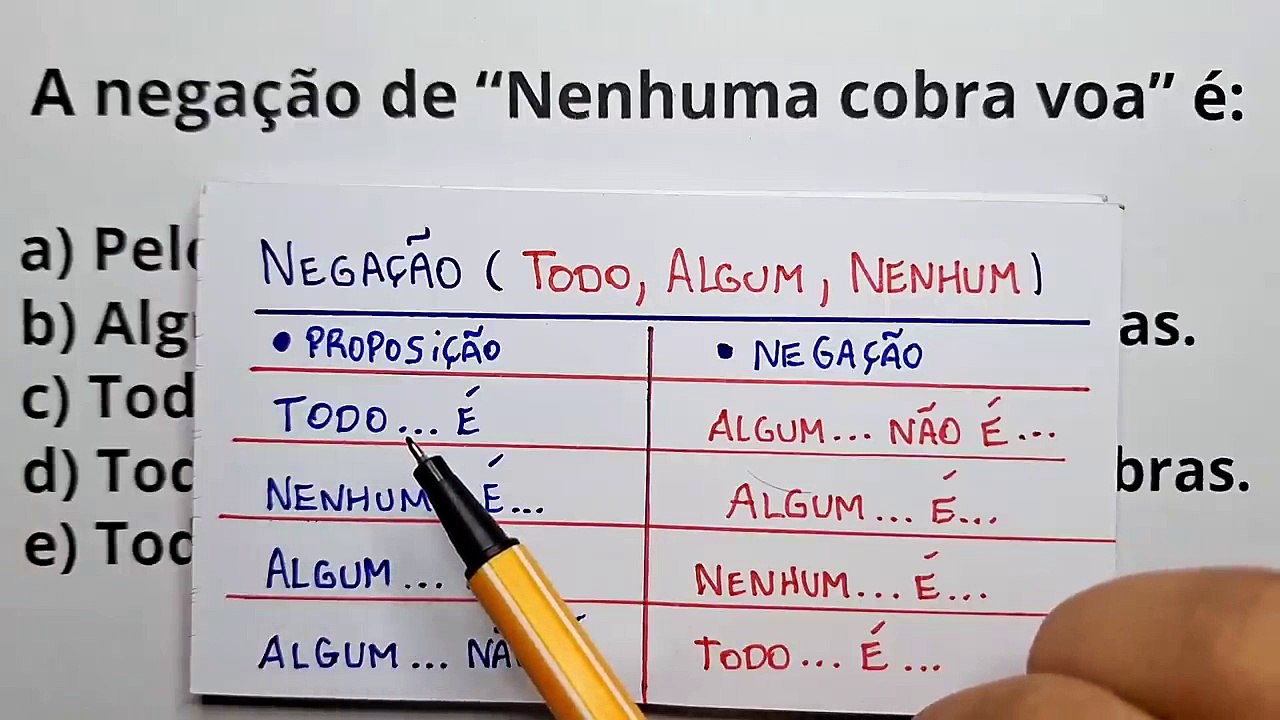 A negação de “Nenhuma cobra voa” é:
a) Pelo
b) Alg as.
c) Tod
d) Tod bras.
e) Tod
NEGAÇÃO ( TODO, ALGUM, NENHUM )
• PROPOSIÇÃO • NEGAÇÃO
TODO... É ALGUM... NÃO É...
NENHUM É... ALGUM... É...
ALGUM... NENHUM... É...
ALGUM... NÃ TODO... É...